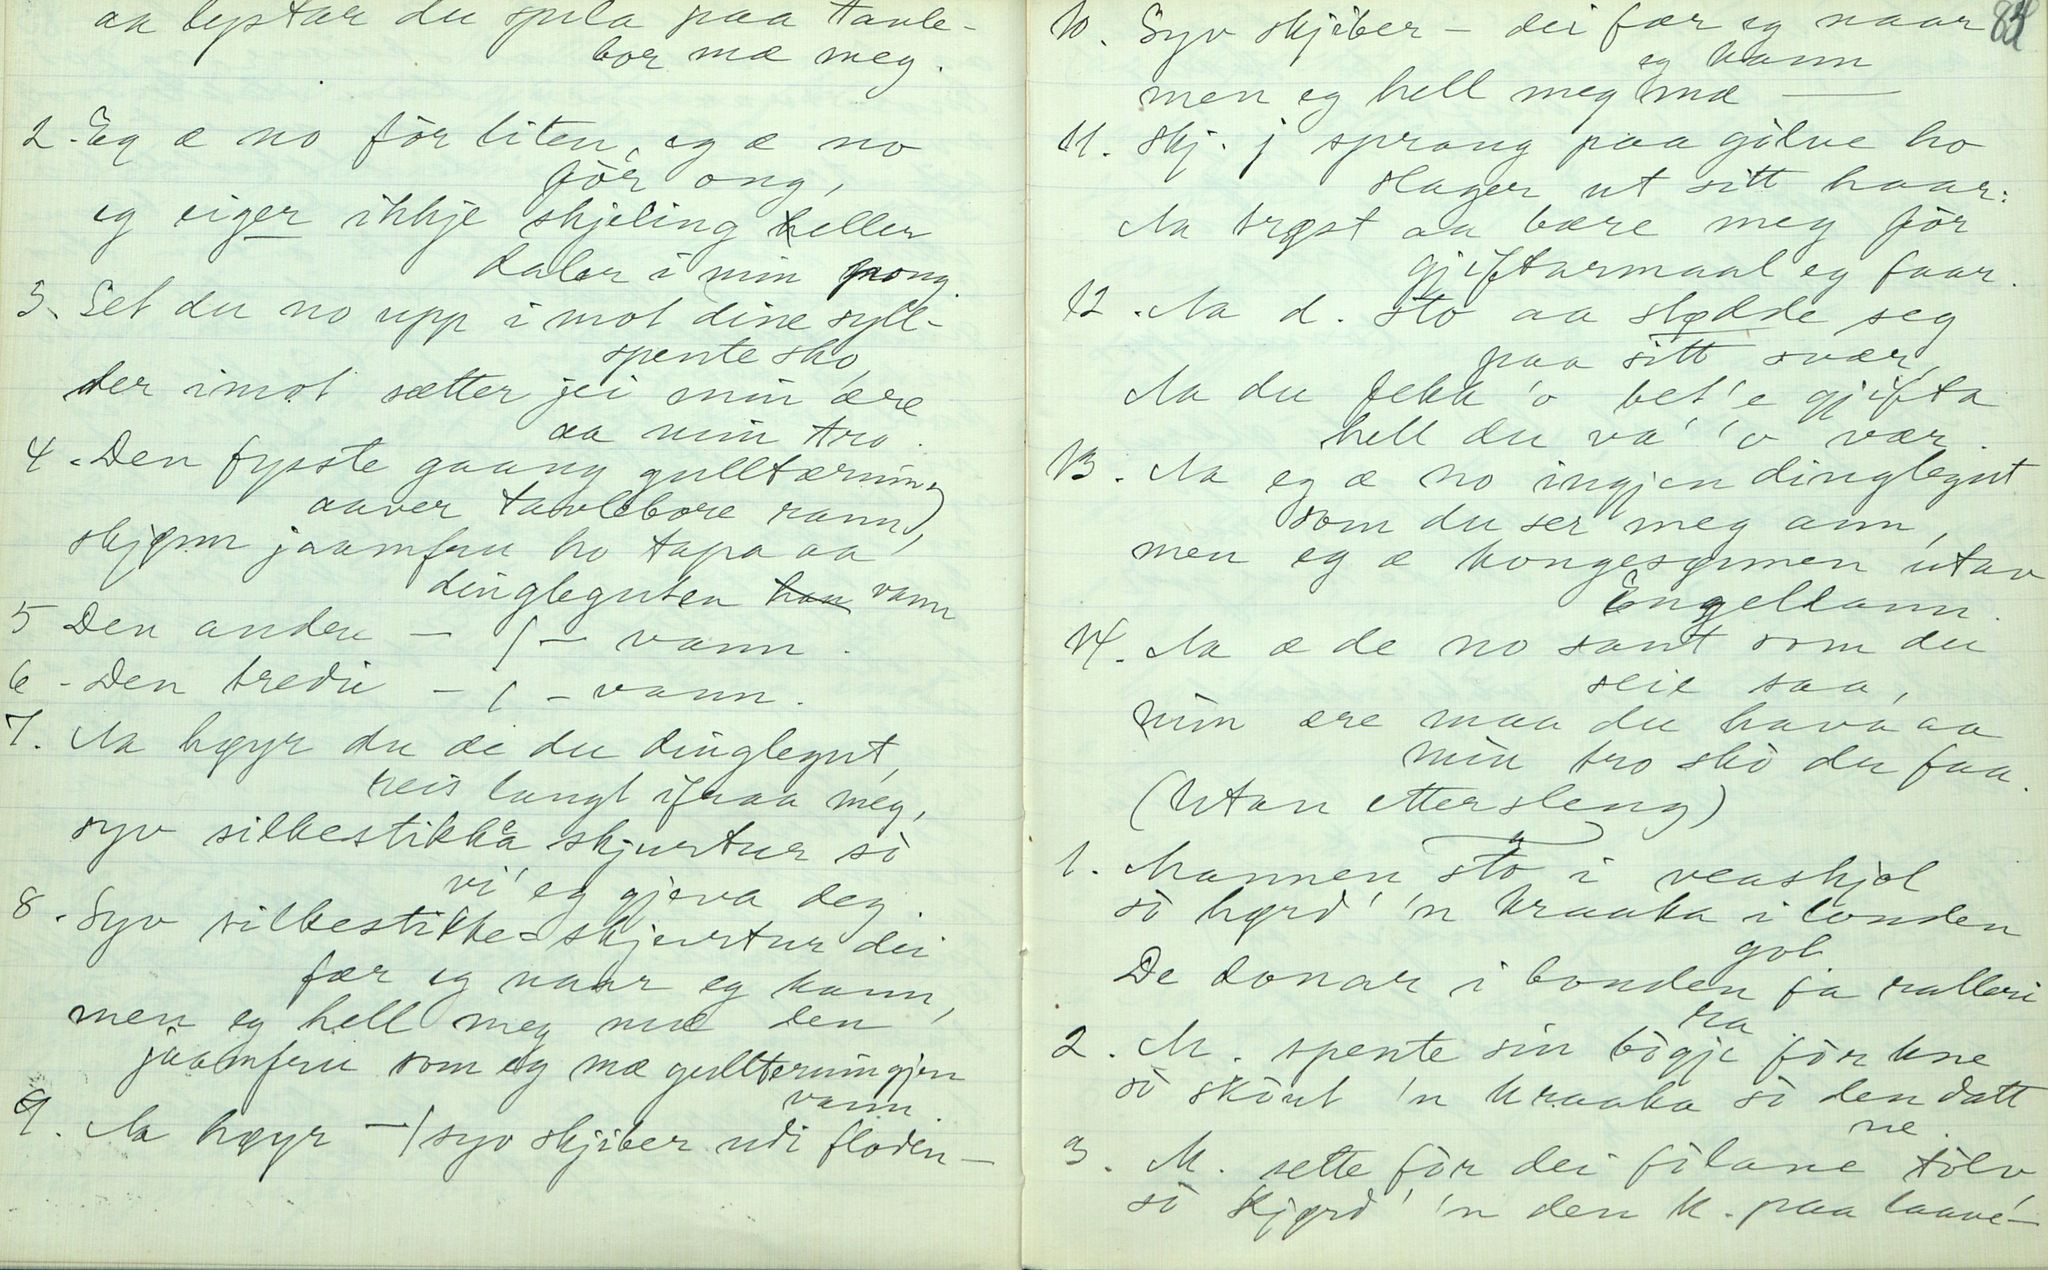 aa lystar du spela paa tavle-
bor mæ meg.
2. Eg æ no fòr liten, eg æ no
fòr ong,
eg eiger ikkje skjeling heller
daler i min pong.
3. Set du no upp i mot dine syll-
spente sko,
der imot sætter jei min ære
aa min tro.
4. Den fysste gaang gulltærning
aaver tavlebore rann,
skjønn jaamfru ho tapa aa
dingleguten han vann
5 Den andre – / – vann.
6 - Den tredie – / – vann.
7. Aa høyr du de du dinglegut,
reis langt ifraa meg,
syv silkestikka skjurtur sò
vi' eg gjeva deg.
8. Syv silkestikke-skjurtur dei
fær eg naar eg kann,
men eg hell meg mæ den
jaamfru som eg mæ gullterningjen
vann.
9. Aa høyr – / syv skjiber udi floden –
10. Syv skjiber – dei fær eg naar 83
eg kann
men eg hell meg mæ —
11. Skj. j sprang paa gòlve ho
slager ut sitt haar:
Aa trøst aa bære meg fòr
gjiftarmaal eg faar.
12. Aa d. sto aa stødde seg
paa sitt svær,
Aa du fekk 'o bet'e gjifta
hell du va' 'o vær.
13. Aa eg æ no ingjen dinglegut
som du ser meg ann,
men eg æ kongesønnen utav
Engelland.
14. Aa æ de no sant som du
seie saa,
min ære maa du hava aa
min tro skò du faa.
(Utan ettersleng)
1. Mannen sto i veaskjol
sò hørd' 'n kraaka i londen
gol
De donar i bonden fa ralleri
ra.
2. M. spente sin bògje fòr kne
sò skòut 'n kraaka sò den datt
ne.
3. M. sette fòr dei fòlane tòlv
sò kjørd' 'n den k. paa laave –